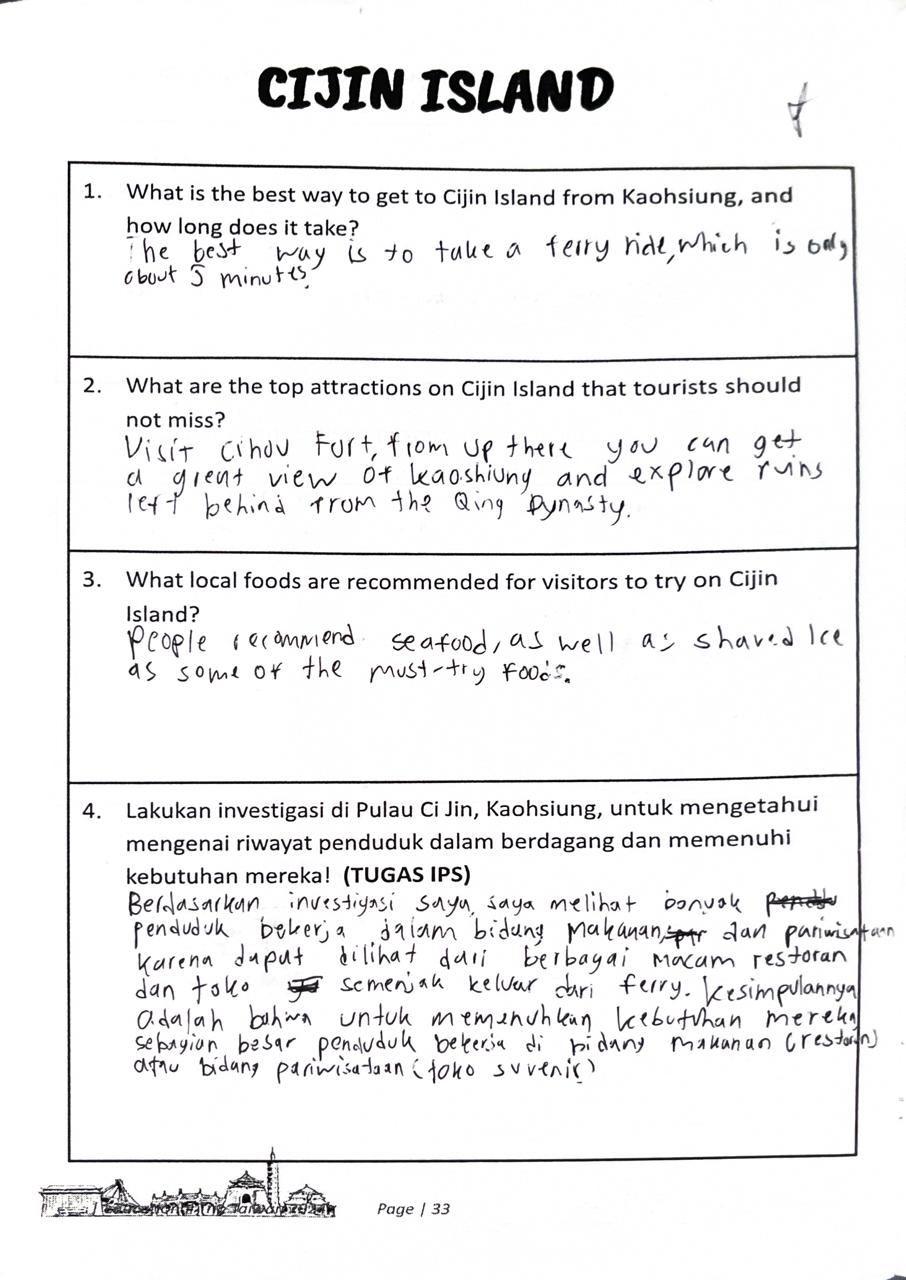 CIJIN ISLAND
1. What is the best way to get to Cijin Island from Kaohsiung, and
how long does it take?
The best way is to take a ferry ride, which is only
about 5 minutes.
2. What are the top attractions on Cijin Island that tourists should
not miss?
Visit Cihou Fort, from up there you can get
a great view of kaoshiung and explore ruins
left behind from the Qing Dynasty.
3. What local foods are recommended for visitors to try on Cijin
Island?
People recommend seafood, as well as shaved Ice
as some of the must-try foods.
4. Lakukan investigasi di Pulau Ci Jin, Kaohsiung, untuk mengetahui
mengenai riwayat penduduk dalam berdagang dan memenuhi
kebutuhan mereka! (TUGAS IPS)
Berdasarkan investigasi saya, saya melihat banyak
penduduk bekerja dalam bidang makanan, dan pariwisataan
karena dapat dilihat dari berbagai macam restoran
dan toko semenjak keluar dari ferry. Kesimpulannya
adalah bahwa untuk memenuhkan kebutuhan mereka
sebagian besar penduduk bekerja di bidang makanan (restoran)
atau bidang pariwisataan (toko suvenir)
Page | 33